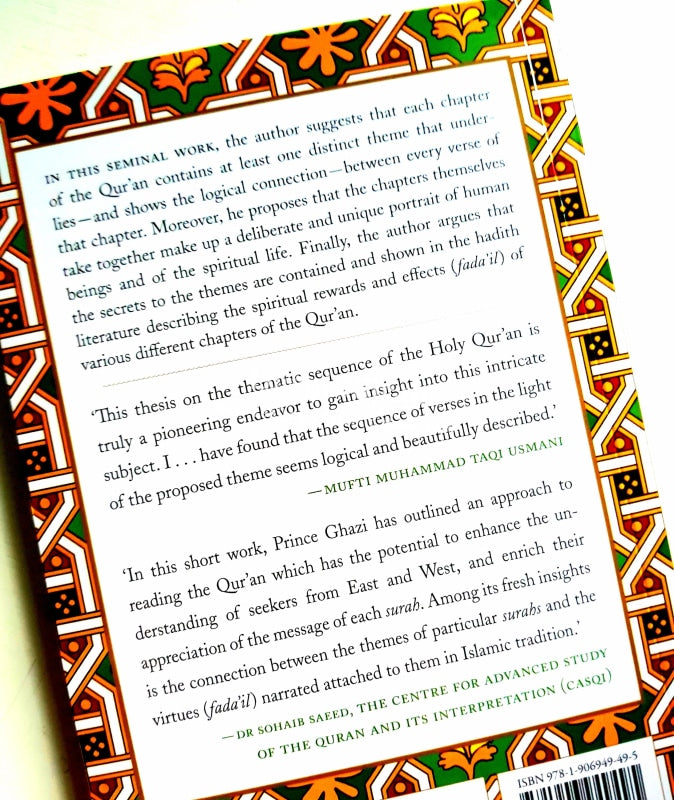 IN THIS SEMINAL WORK, the author suggests that each chapter
of the Qur'an contains at least one distinct theme that under-
lies—and shows the logical connection—between every verse of
that chapter. Moreover, he proposes that the chapters themselves
take together make up a deliberate and unique portrait of human
beings and of the spiritual life. Finally, the author argues that
the secrets to the themes are contained and shown in the hadith
literature describing the spiritual rewards and effects (fada'il) of
various different chapters of the Qur'an.
'This thesis on the thematic sequence of the Holy Qur'an is
truly a pioneering endeavor to gain insight into this intricate
subject. I . . . have found that the sequence of verses in the light
of the proposed theme seems logical and beautifully described.'
—MUFTI MUHAMMAD TAQI USMANI
'In this short work, Prince Ghazi has outlined an approach to
reading the Qur'an which has the potential to enhance the un-
derstanding of seekers from East and West, and enrich their
appreciation of the message of each surah. Among its fresh insights
is the connection between the themes of particular surahs and the
virtues (fada'il) narrated attached to them in Islamic tradition.'
—DR SOHAIB SAEED, THE CENTRE FOR ADVANCED STUDY
OF THE QURAN AND ITS INTERPRETATION (CASQI)
ISBN 978-1-906949-49-5